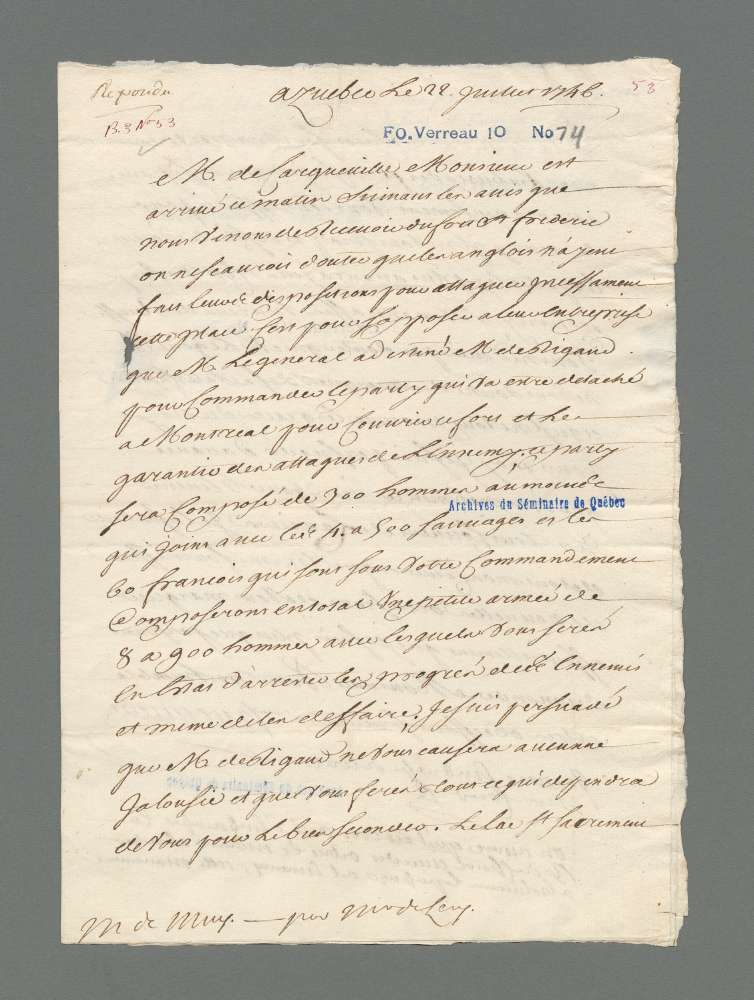 Repondu
B.3 No 53
a quebec Le 28. Juillet 1746.
53
FO. Verreau 10 No 74
M. de Lacqueuille Monsieur est
arrivé ce matin Suivant les auis que
nous Venons de Recevoir du fort St frederic
on ne scauroit douter que les anglois n'ayent
fait leurs dispositions pour attaquer Incessament
cette place C'est pour S'opposer a leur Entreprise
que M. Le general a destiné M. de Rigaud
pour Commander le party qui Va estre detaché
a Montreal pour Couurir ce fort et Le
garantir des attaques de L'Ennemy, ce party
sera Composé de 300 hommes au moins
Archives du Séminaire de Québec
qui joins avec les 4. a 500 Sauvages et les
60 francois qui sont sous Votre Commandement
Composeront en total Une petite armée de
8 a 900 hommes avec lesquels Vous serés
En Estat d'arrester les progrés de Ennemis
et meme de les deffaire, Je suis persuadé
que M. de Rigaud ne Vous causera aucunne
Jalousie et que Vous ferés tout ce qui dependra
de Vous pour Le bien seconder. Le Lac St Sacrement
M de Muy. — par